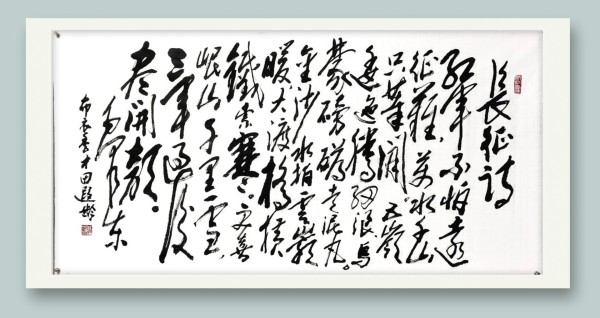 長征詩
紅軍不怕遠
征難萬水千山
只等閑五嶺
逶迤騰細浪烏
蒙磅礴走泥丸。
金沙水拍雲
暖大渡橋橫
鐵索寒更喜
岷山千里雪
三軍過後
盡開顏
毛澤東
布衣秀才田